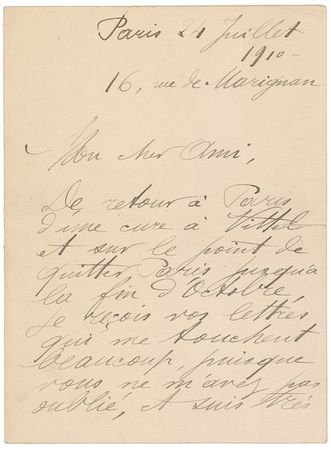 Paris 24 Juillet
1910
16, rue de Marignan
Mon cher Ami,
De retour à Paris
d'une cure à Vittel
et sur le point de
quitter Paris jusqu'à
la fin d'Octobre,
je reçois vos lettres
qui me touchent
beaucoup puisque
vous ne m'avez pas
oublié, et suis très